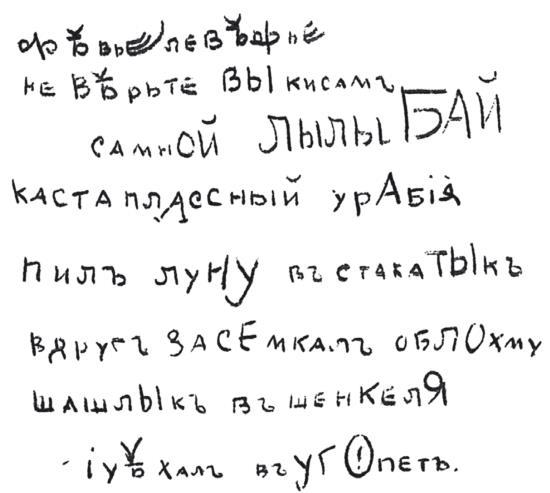 не вѣрьте ВЫ кисамъ
самнОЙ ЛЫЛЫ БАЙ
кастаплассный урАбія
пилъ лунУ въ стакаТЫкъ
вдругъ ЗАСЕмкалъ облОхму
шашлЫкъ въ шенкеля
іуѣхалъ въ угОпетъ.